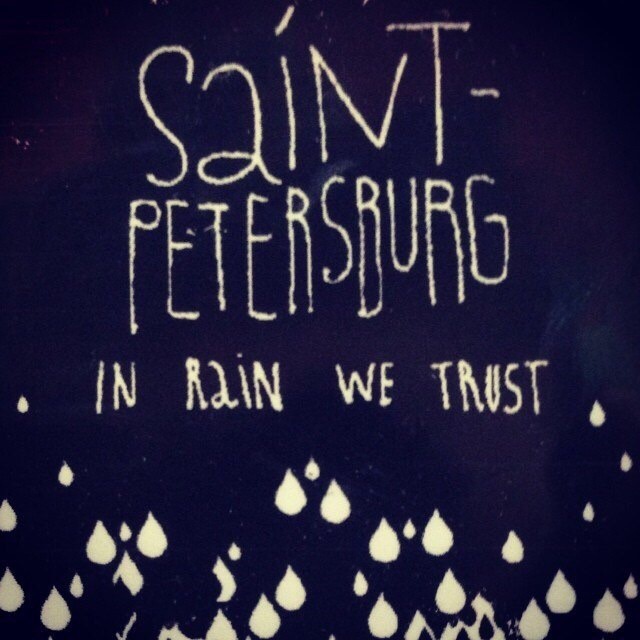 SaiNT-
PETERSBURG
IN RaiN WE TRUST